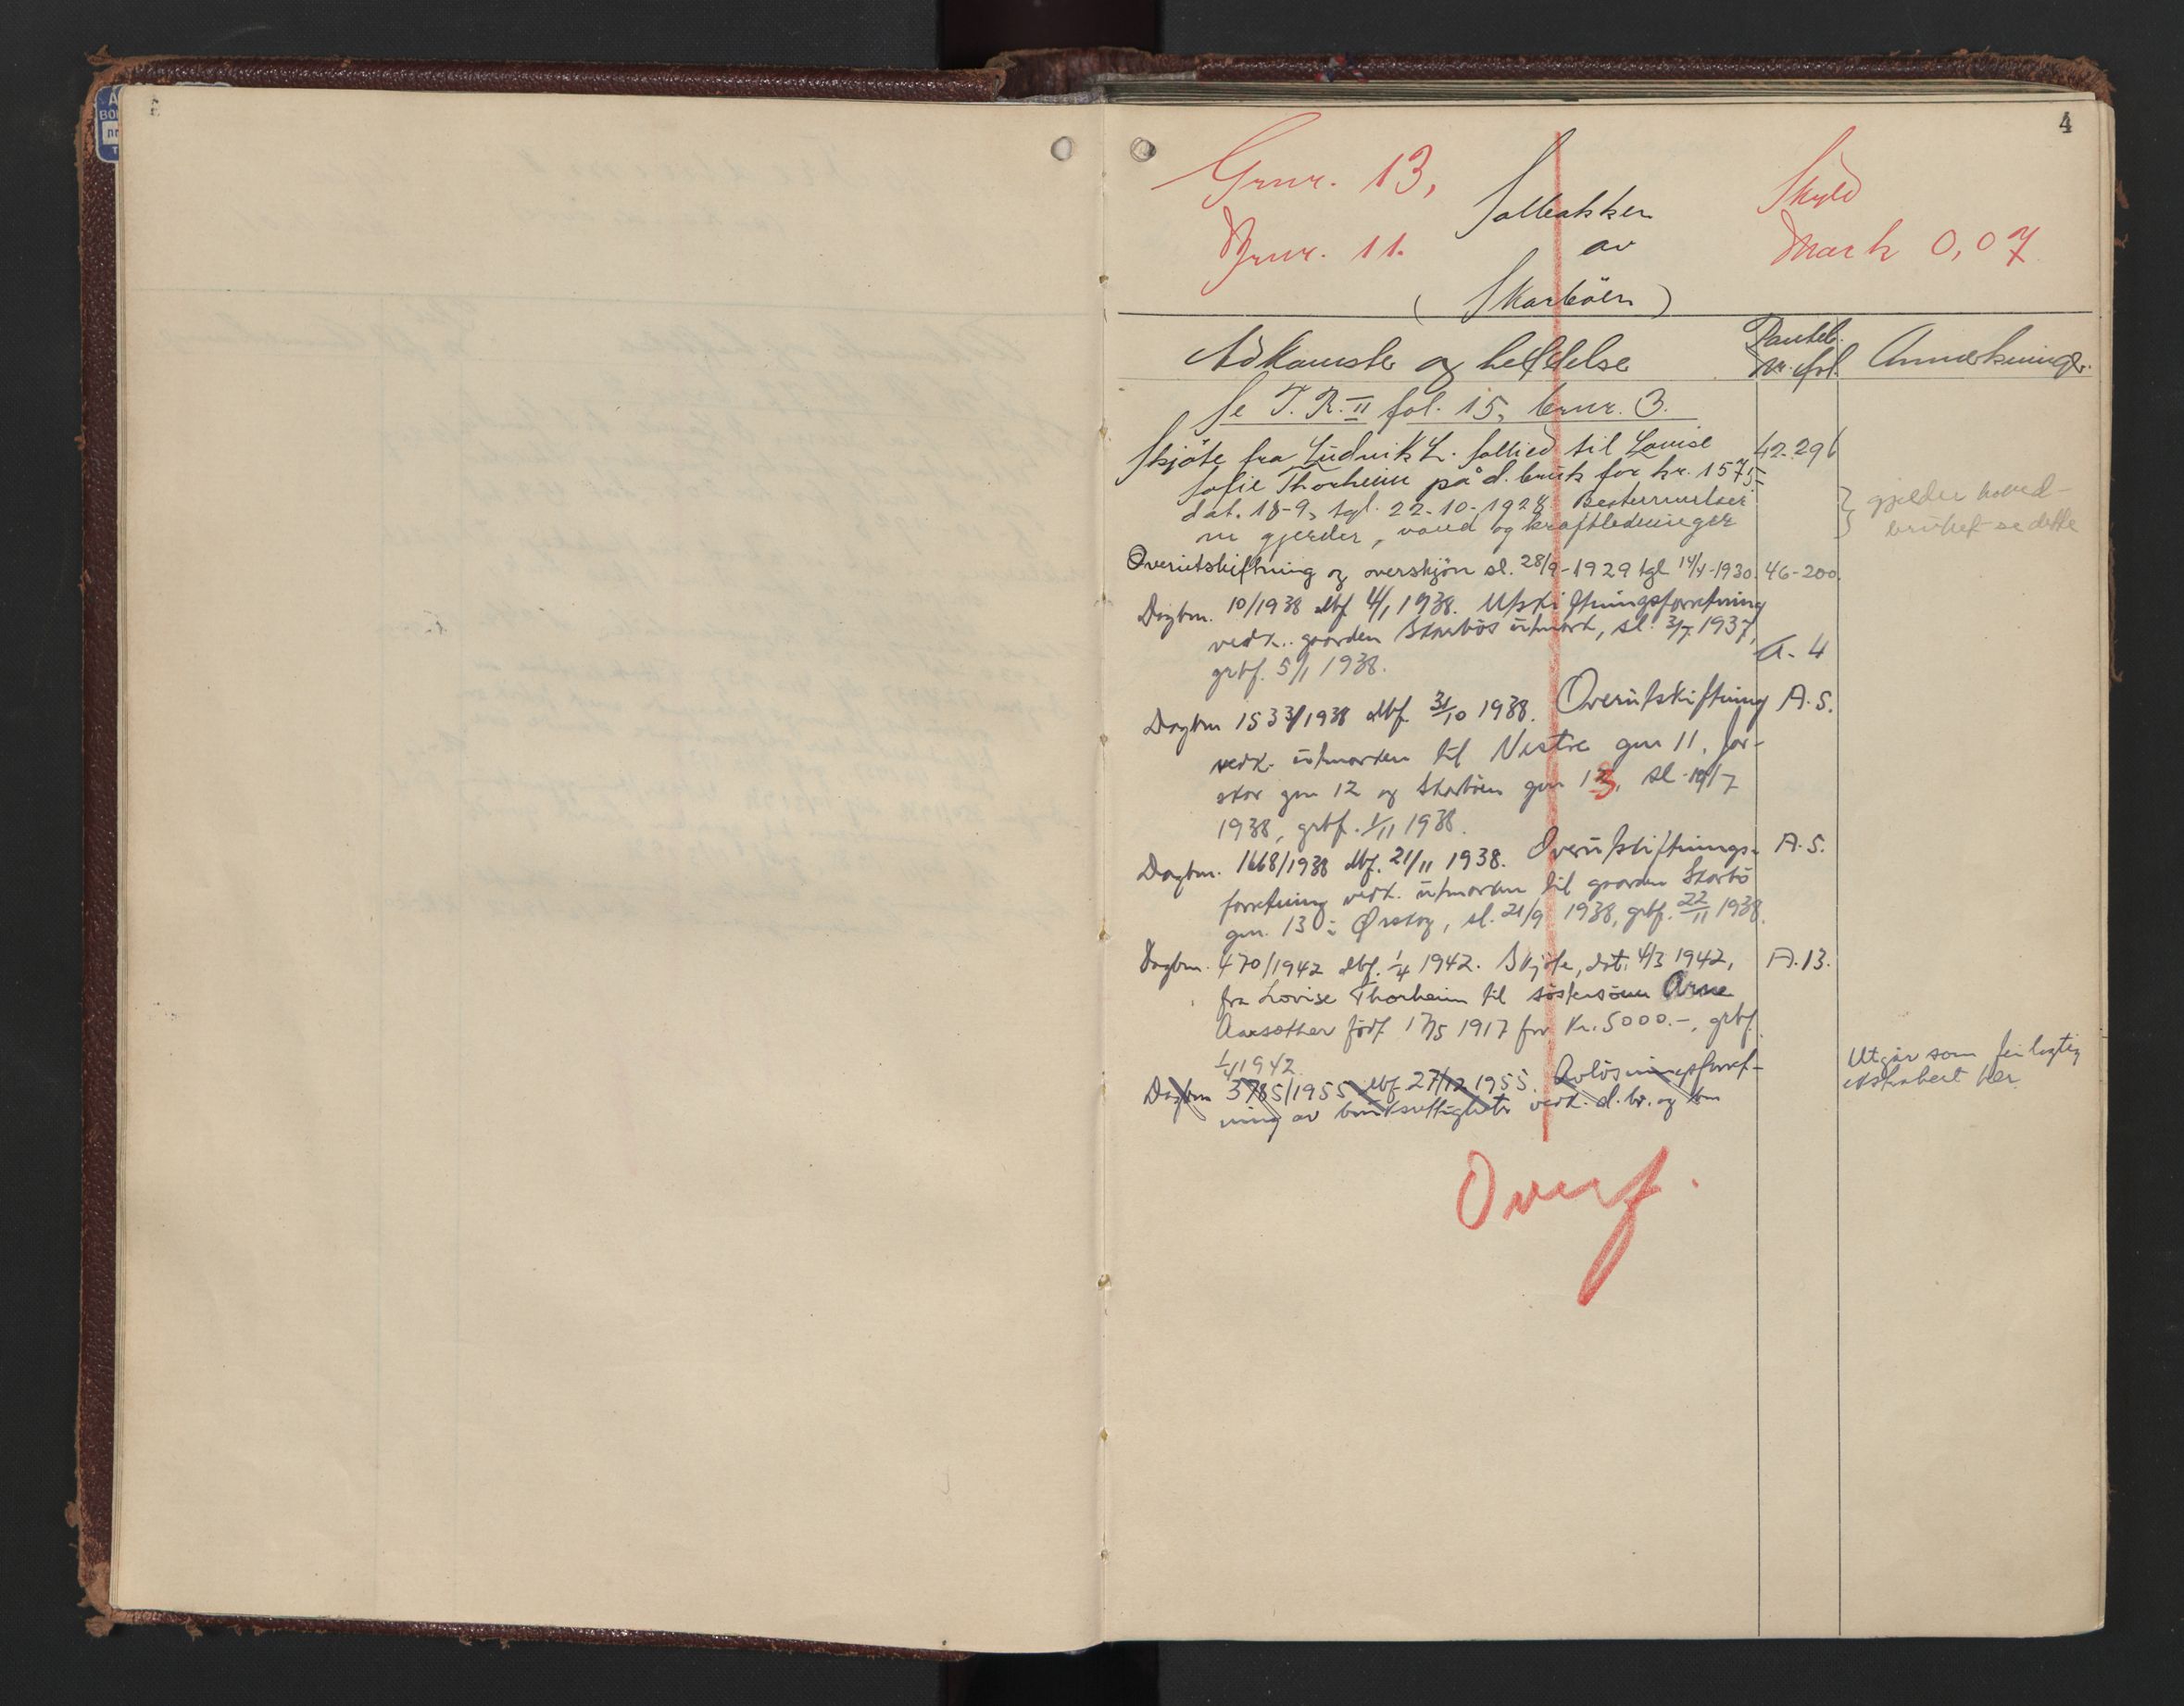 4
Grnr. 13,
Brnr. 11.
Solbakken
av
(Skarböen)
Skyld
Mark 0,07
Adkomster og heftelser
Panteb.
Nr. fol.
Anmerkninger.
Se T. R. II fol. 15, brnr. 3.
Skjöte fra Ludvik L. Sollied til Lovise 42-296
Sofie Thorheim på d. bruk for kr. 1575-
dat. 18-9, tgl. 22-10-1928 Bestemmelser
om gjerder, vand og kraftledninger
} gjelder hoved-
bruket se dette
Overutskiftning og overskjön sl. 28/9-1929 tgl 14/4-1930. 46-200.
Dagbnr. 10/1938 dbf 4/1 1938. Utskiftningsforretning
vedk. gaarden Skarbös utmark, sl. 3/7 1937,
grbf. 5/1 1938.
A. 4
Dagbnr 1533/1938 dbf. 31/10 1938. Overutskiftning A. 5.
vedk. utmarken til Vestre gnr 11, For-
skar gnr 12 og Skarböen gnr 13, sl.
1938, grbf. 1/11 1938.
Dagbnr. 1668/1938 dbf. 21/11 1938. Overutskiftnings- A. 5.
forretning vedk. utmarken til gaarden Skarbö
gnr. 13 i Ørskog, sl. 21/9 1938, grbf. 22/11 1938.
Dagbnr. 470/1942 dbf. 1/4 1942. Skjöte, dat. 4/3 1942, A. 13.
fra Lovise Thorheim til söstersönn Arne
Aarsæther född 17/5 1917 for Kr. 5000.-, grbf.
1/4 1942.
Dagbnr 3785/1955 dbf 27/12 1955. Avlösningsforret-
ning av bruksrettigheter vedk. d. br. og bnr
Utgår som feilagtig
ekstrahert her.
Overf.